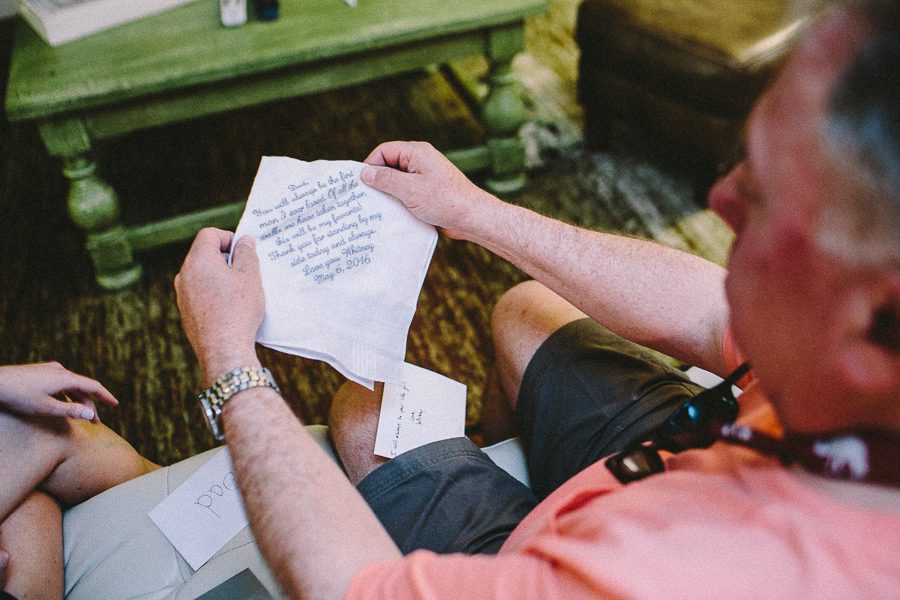 Dad,
You will always be the first
man I ever loved. Of all the
walks we have taken together,
this will be my favorite!
Thank you for standing by my
side today and always.
Love you, Whitney
May 6, 2016
I will always be your
Love
Whitney
Dad